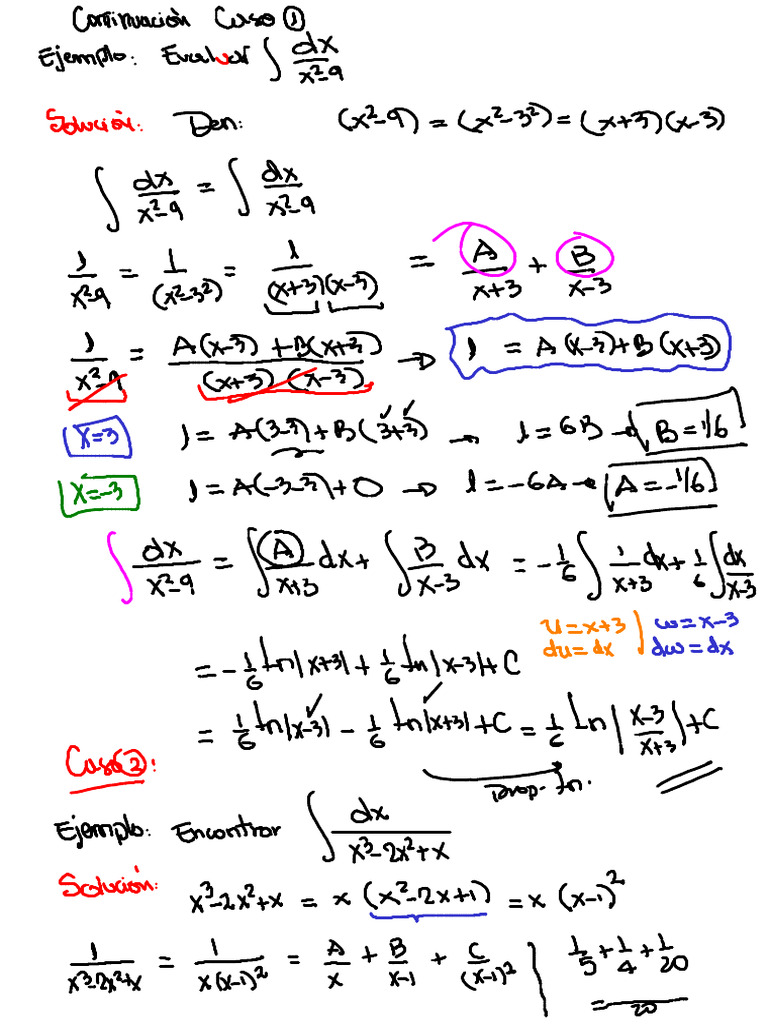 Continuación Caso ①
Ejemplo: Evaluar ∫ dx/(x²-9)
Solución: Den: (x²-9) = (x²-3²) = (x+3)(x-3)
∫ dx/(x²-9) = ∫ dx/(x²-9)
1/(x²-9) = 1/(x²-3²) = 1/((x+3)(x-3)) = A/(x+3) + B/(x-3)
1/(x²-9) = (A(x-3)+B(x+3))/((x+3)(x-3)) → 1 = A(x-3)+B(x+3)
x=3 1 = A(3-3)+B(3+3) → 1=6B → B=1/6
x=-3 1=A(-3-3)+0 → 1=-6A → A=-1/6
∫ dx/(x²-9) = ∫ A/(x+3) dx + ∫ B/(x-3) dx = -1/6 ∫ 1/(x+3) dx + 1/6 ∫ dx/(x-3)
u=x+3 | w=x-3
du=dx | dw=dx
= -1/6 ln|x+3| + 1/6 ln|x-3| + C
= 1/6 ln|x-3| - 1/6 ln|x+3| + C = 1/6 ln|(x-3)/(x+3)| + C
Prop. ln.
Caso ②:
Ejemplo: Encontrar ∫ dx/(x³-2x²+x)
Solución: x³-2x²+x = x(x²-2x+1) = x(x-1)²
1/(x³-2x²+x) = 1/(x(x-1)²) = A/x + B/(x-1) + C/(x-1)² | 1/5 + 1/4 + 1/20
= /20